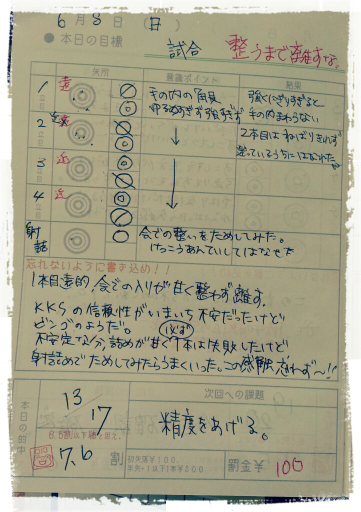 6月8日(日)
●本日の目標
試合 整うまで離すな。
矢所 意識ポイント 結果
1 手の内の角見 強くにぎりすぎると
ゆるめすぎず強すぎず 手の内まわらない
2 ↓ 2本目はねばりきれず
整っているうちにはなれた
3
4
射詰 会での整いをためしてみた。
けっこうあんていしてはなせた
忘れないように書き込め!!
1本目遠的、会での入りが甘く整わず離す。
KKSの信頼性がいまいち不安だったけど
ビンゴのようだ。
不安定な分、詰めが甘く必ず1本は失敗したけど
射詰めでためしてみたらうまくいった。この感触忘れず〜!!
本日の的中 13/17
7.6割
次回への課題
精度をあげる。
罰金¥ 100